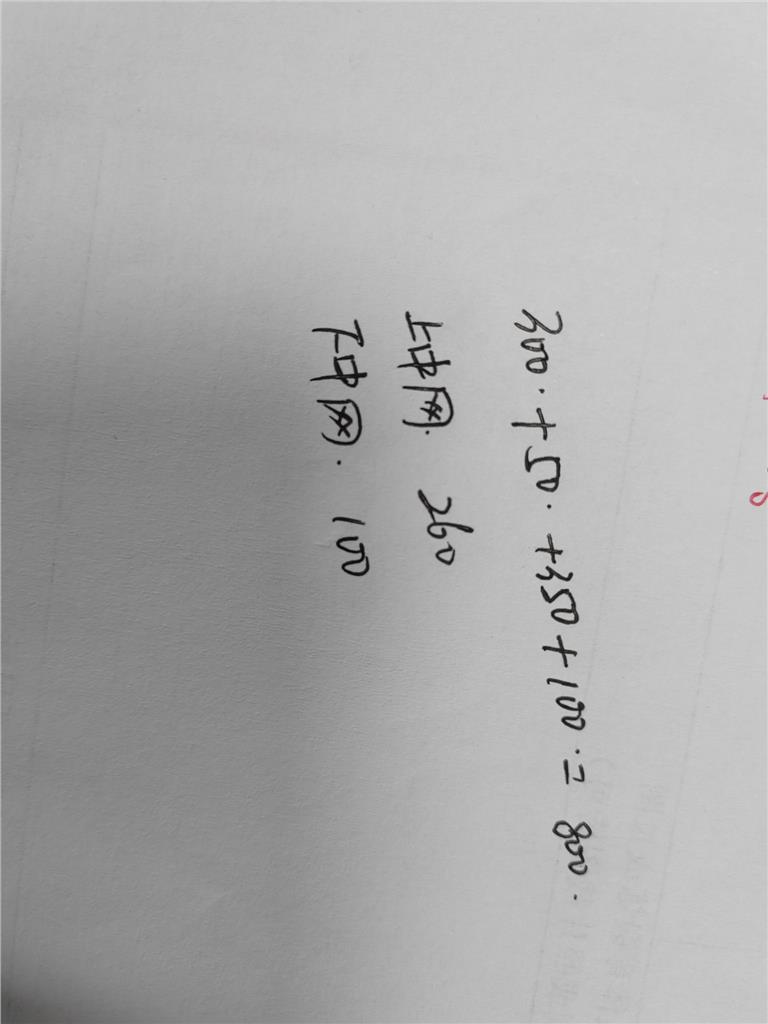 300.+50.+350+100.=800.
上中网. 260
下中网. 100